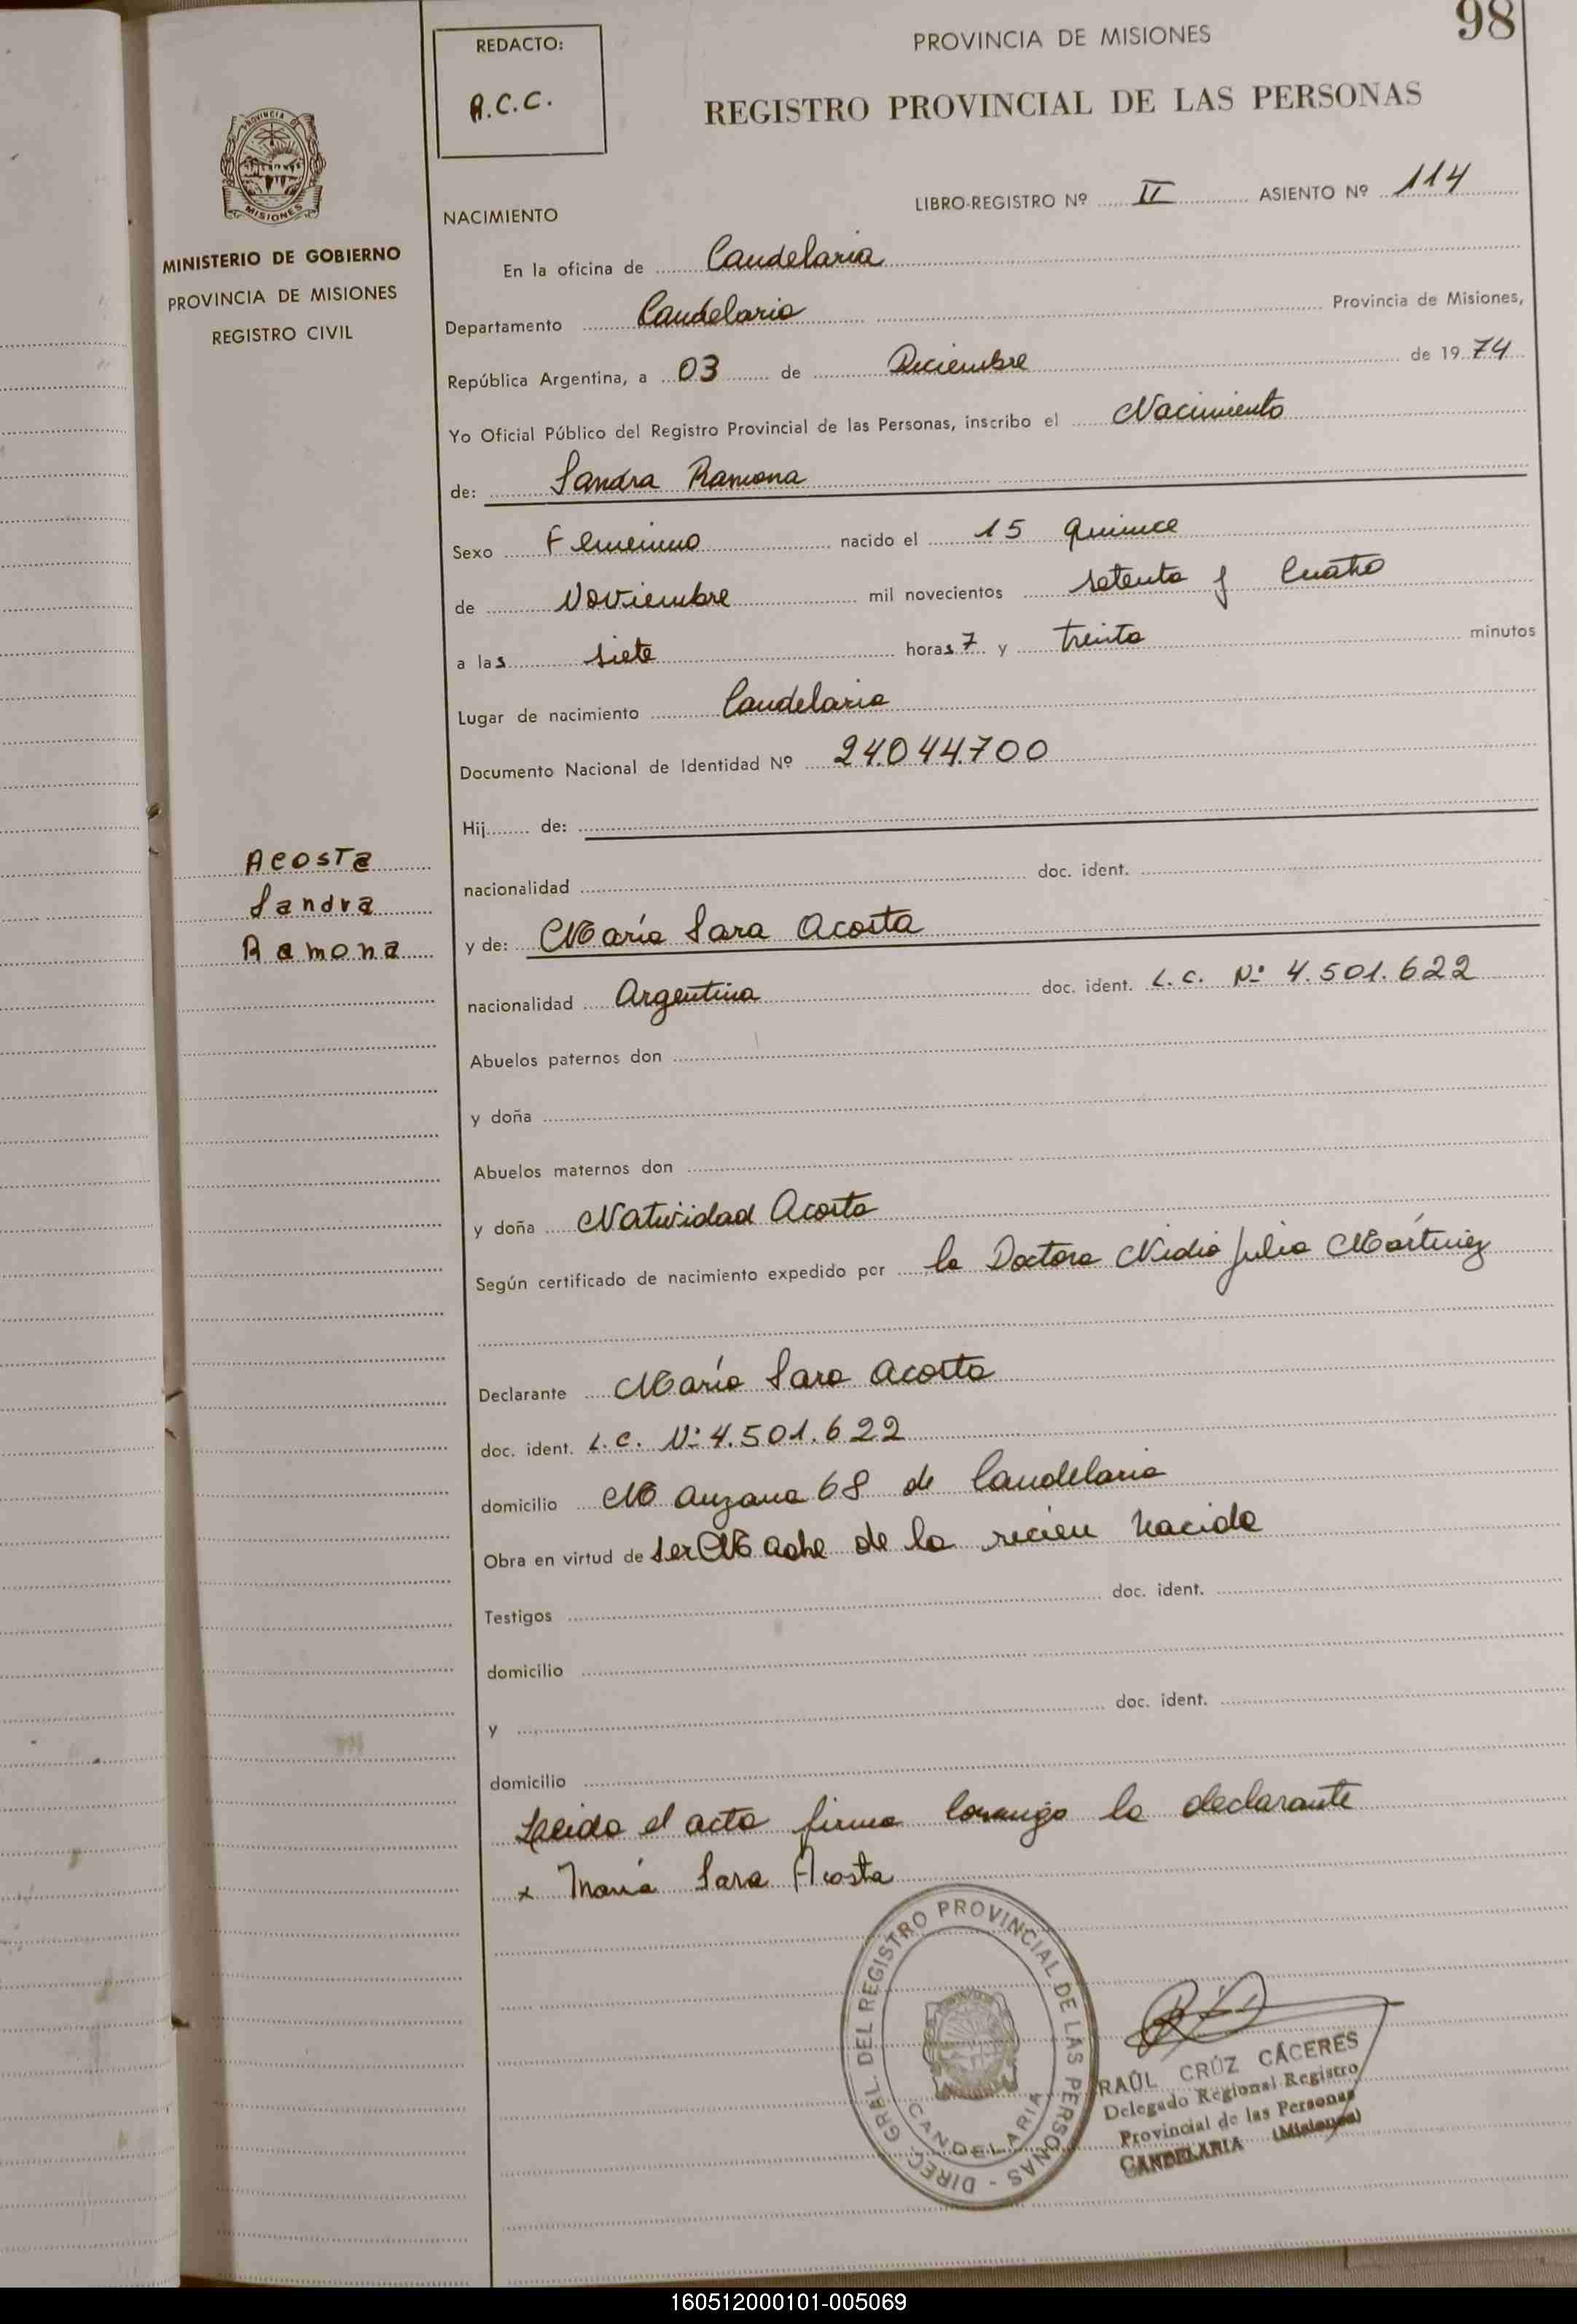 98
REDACTO:
R.C.C.
PROVINCIA DE MISIONES
REGISTRO PROVINCIAL DE LAS PERSONAS
PROVINCIA DE
MISIONES
MINISTERIO DE GOBIERNO
PROVINCIA DE MISIONES
REGISTRO CIVIL
NACIMIENTO
LIBRO-REGISTRO Nº II ASIENTO Nº 114
En la oficina de Candelaria
Departamento Candelaria Provincia de Misiones,
República Argentina, a 03 de Diciembre de 1974
Yo Oficial Público del Registro Provincial de las Personas, inscribo el Nacimiento
de: Sandra Ramona
Sexo Femenino nacido el 15 quince
de Noviembre mil novecientos setenta y Cuatro
a las siete horas 7 y treinta minutos
Lugar de nacimiento Candelaria
Documento Nacional de Identidad Nº 24.044.700
Hij de:
nacionalidad doc. ident.
Acosta
Sandra
Ramona
y de: María Sara Acosta
nacionalidad Argentina doc. ident. L.C. Nº 4.501.622
Abuelos paternos don
y doña
Abuelos maternos don
y doña Natividad Acosta
Según certificado de nacimiento expedido por la Doctora Nidia Julia Mártinez
Declarante María Sara Acosta
doc. ident. L.C. Nº 4.501.622
domicilio Manzana 68 de Candelaria
Obra en virtud de ser Madre de la recien nacida
Testigos doc. ident.
domicilio
y doc. ident.
domicilio
Leido el acta firma conmigo la declarante
x María Sara Acosta
DIREC. GRAL. DEL REGISTRO PROVINCIAL DE LAS PERSONAS -
CANDELARIA
RAÚL CRÚZ CÁCERES
Delegado Regional Registro
Provincial de las Personas
CANDELARIA (Misiones)
160512000101-005069